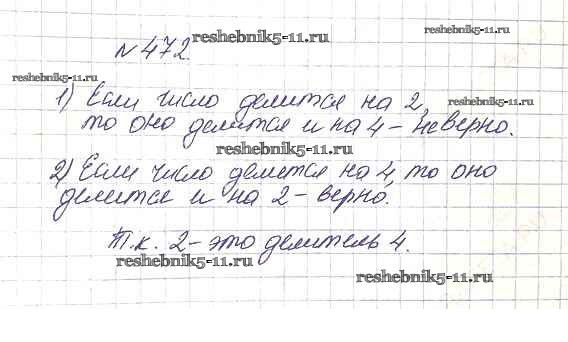 №472.
1) Если число делится на 2,
то оно делится и на 4 - неверно.
2) Если число делится на 4, то оно
делится и на 2 - верно,
Т.к. 2 - это делитель 4.
reshebnik5-11.ru
reshebnik5-11.ru
reshebnik5-11.ru
reshebnik5-11.ru
reshebnik5-11.ru
reshebnik5-11.ru
reshebnik5-11.ru